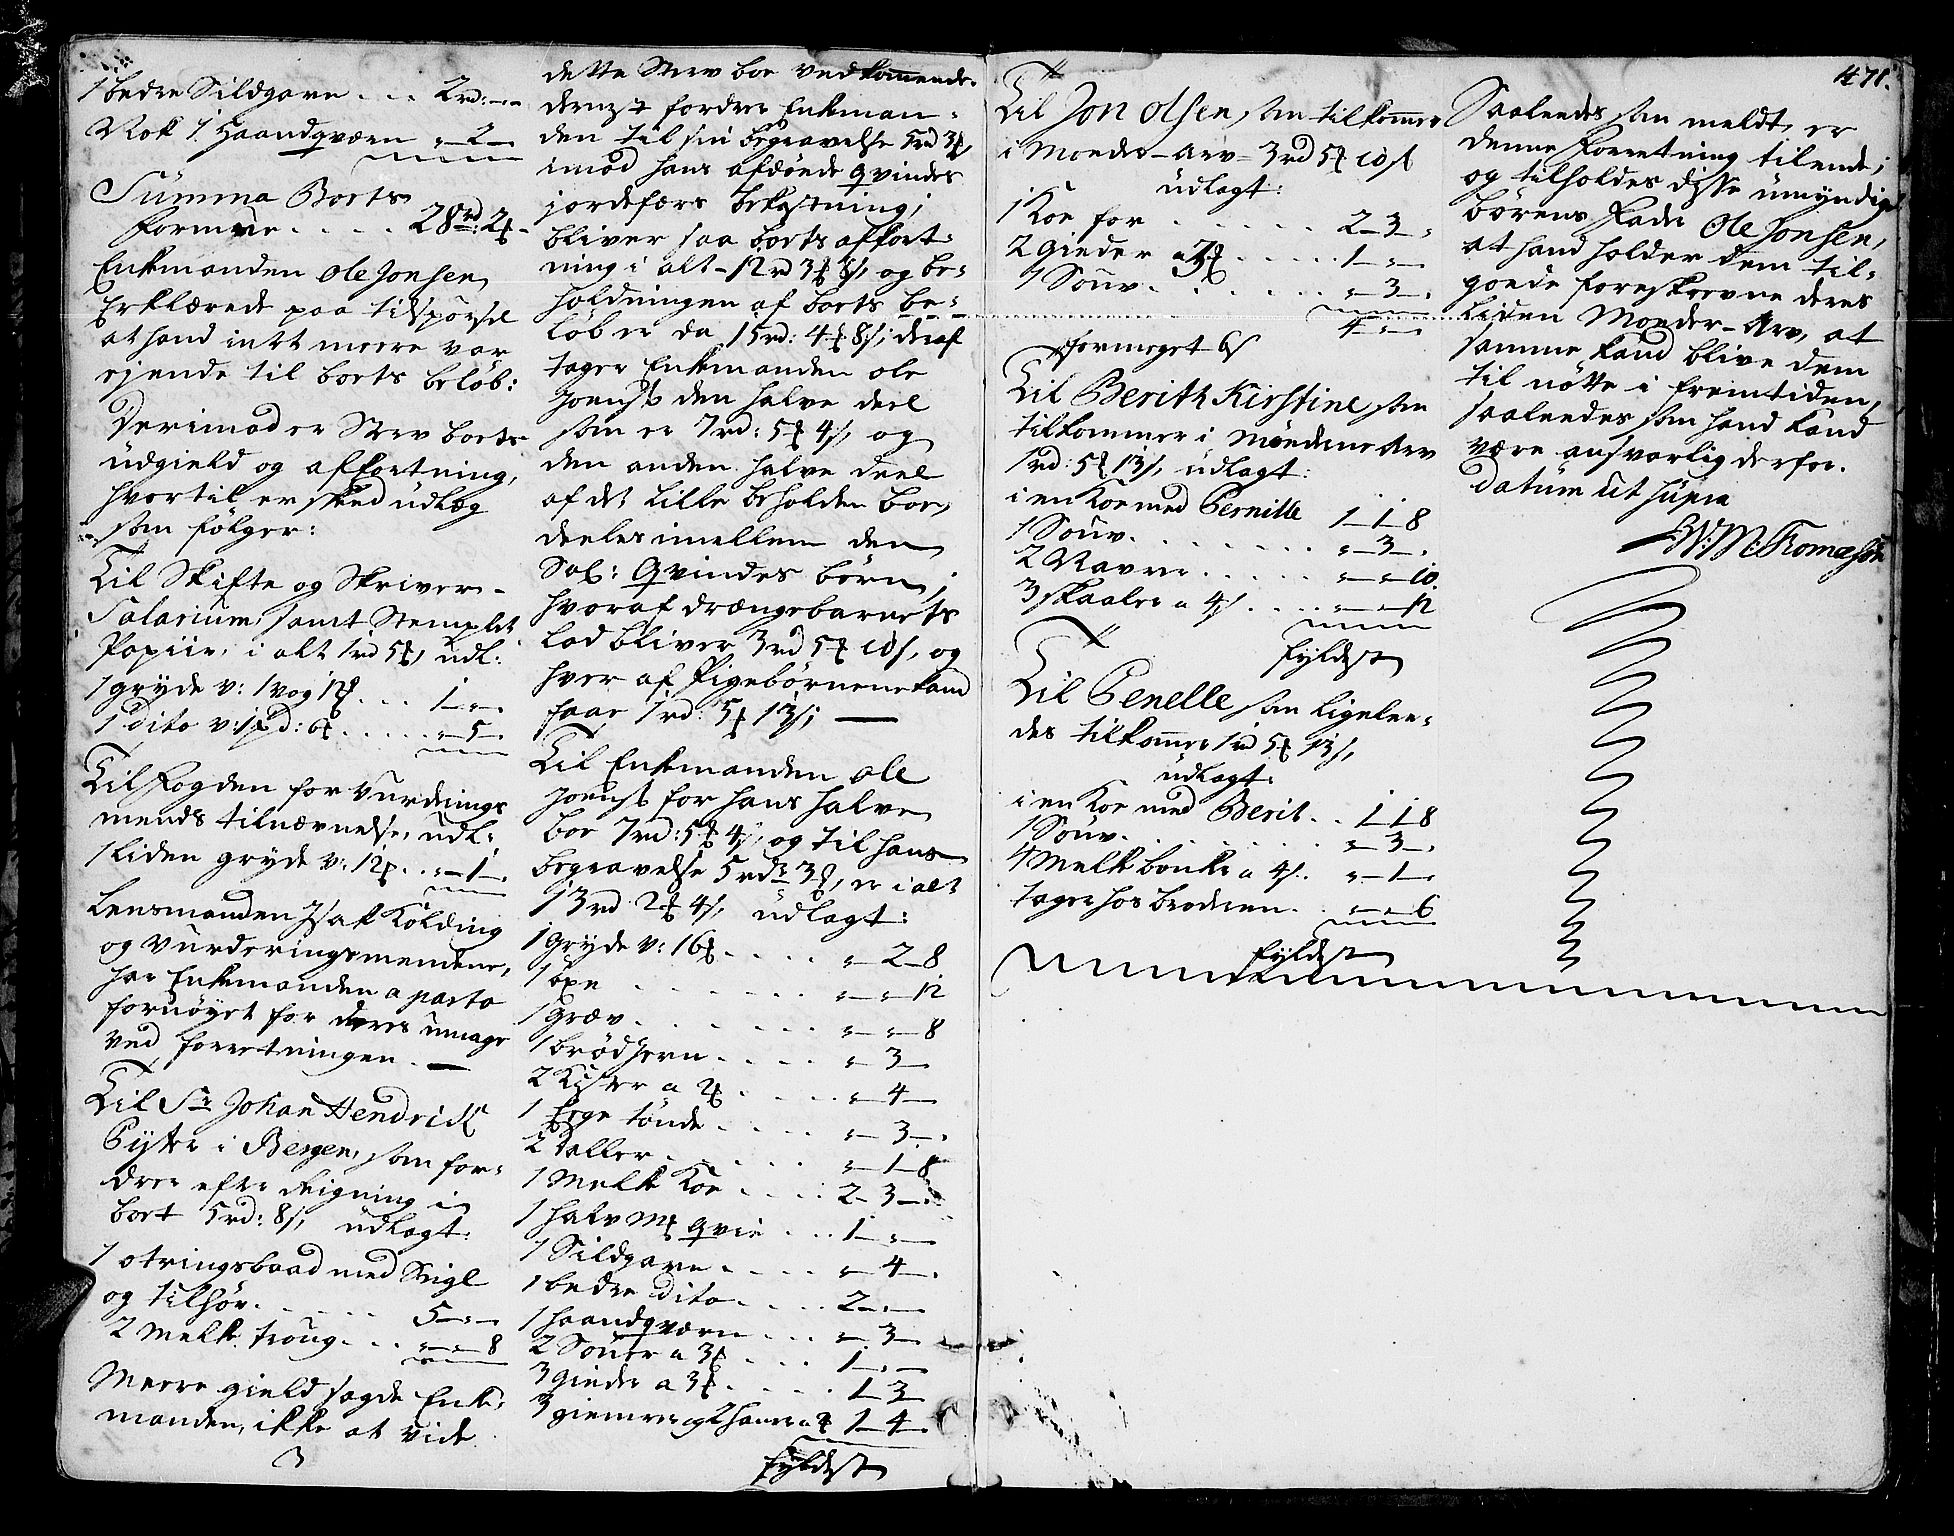 1 bedre Sildgarn . . . 2rd: - -
Rok 1 Haandqværn „ - 2 -
Summa Boets
formue . . . . . 28rd: 2 -
Enkemanden Ole Jonsen
Erklærede paa tilspørsel
at hand intet meere var
ejende til boets beløb:
Derimod er Sterv boets
udgield og affortning,
hvortil er skeed udlæg
som følger:
Til Skifte og Skriver-
Salarium, samt Stemplet
Papiir, i alt 1rd 5, udl:
1 gryde v: 1 vog . . . 1 „ -
1 dito v: 1pd: 6 . . . . . „ - 5 -
Til Fogden for Vurderings
mends tilnævnelse, udl:
1 liden gryde v: 12 . . „ - 1 -
Lensmanden Isak Kolding
og Vurderingsmendene,
har Enkemanden a parto
fornøyet for deres umage
ved forretningen. —
Til Sr Johan Hendrich
i Bergen, som for-
drer efter Reigning i
boet 5rd: 8 s, udlagt:
1 otringsbaad med Seigl
og tilhør . . . . . . 5 - „ -
2 Melk troug . . . „ - „ - 8
Meere gield sagde Enke-
manden, ikke at vide
dette Sterv boe vedkommende.
dernest fordrer Enkeman-
den til sin begravelse 5rd 3
imod hans afdøde Qvindes
jordefærs bekostning;
bliver saa boets affort-
ning i alt - 12rd 3 8 s, og be-
holdningen af boets be-
løb er da 15rd: 4 8 s; deraf
tager Enkemanden ole
Joensen den halve deel
som er 7rd: 5 4 s, og
den anden halve deel
af det lille beholden boe,
deeles imellem den
Sal: Qvindes børn,
hvoraf drængebarnets
lod bliver 3rd 5 10 s, og
hver af Pigebørnene kand
faae 1rd: 5 13 s; —
Til Enkemanden ole
Joensen for hans halve
boe 7rd: 5 4 s, og til hans
begravelse 5 rdr 3, er i alt
13rd 2 4 s, udlagt:
1 Gryde v: 16 . . . . . „ - 2 - 8
1 öxe . . . . . . . „ - „ - 12
1 Græv . . . . . . . „ - „ - 8
1 brødjern . . . . . „ - 3 -
2 Kister a 2 . . . . . „ - 4 -
1 tønde . . . . . „ - 3 - „
2 taller . . . . . . „ - 1 - 8
1 Melk Koe . . . . 2 - 3 - „
1 halv qvie . . . 1 - „ -
1 Sildgarn . . . . . „ - 4 -
1 bedre dito . . . . 2 - „ -
1 haandqværn . . . „ - 3 -
2 Souer a 3 . . . . 1 - „ -
3 gieder a 3 . . . . 1 - 3 -
3 og 2 1 - 4 -
fyldest
471.
Til Jon Olsen, som tilkommer
i Moeder-arv - 3rd 5 10 s
udlagt:
1 Koe for . . . . . . 2 - 3 - „
2 gieder a 3 . . . . . 1 - „ -
1 Souv . . . . . . . „ - 3 -
4 - „ -
formeget 6 s
Til Berith Kirstine, som
tilkommer i Mödrene Arv
1rd: 5 13 s, udlagt:
i en Koe med Pernille 1 - 1 - 8
1 Souv . . . . . . . „ - 3 -
2 . . . . . „ - „ - 10
3 skaaler a 4 s . . . . „ - „ - 12
fyldest
Til Penelle som ligelee-
des tilkommer 1rd 5 13 s,
udlagt:
i en Koe med Berit . . 1 - 1 - 8
1 Souv . . . . . . . . „ - 3 -
4 Melk bunker a 4 s . „ - 1 -
tager hos broderen . „ - „ - 6
fyldest
Saaleedes som meldt, er
denne Forretning tilende;
og tilholdes disse umyndige
børens Fader Ole Jonsen,
at hand holder dem til-
gode foreskrevne deres
liden Moeder-Arv, at
samme kand blive dem
til nötte i fremtiden,
saaleedes som hand kand
være ansvarlig derfor.
Datum ut supra